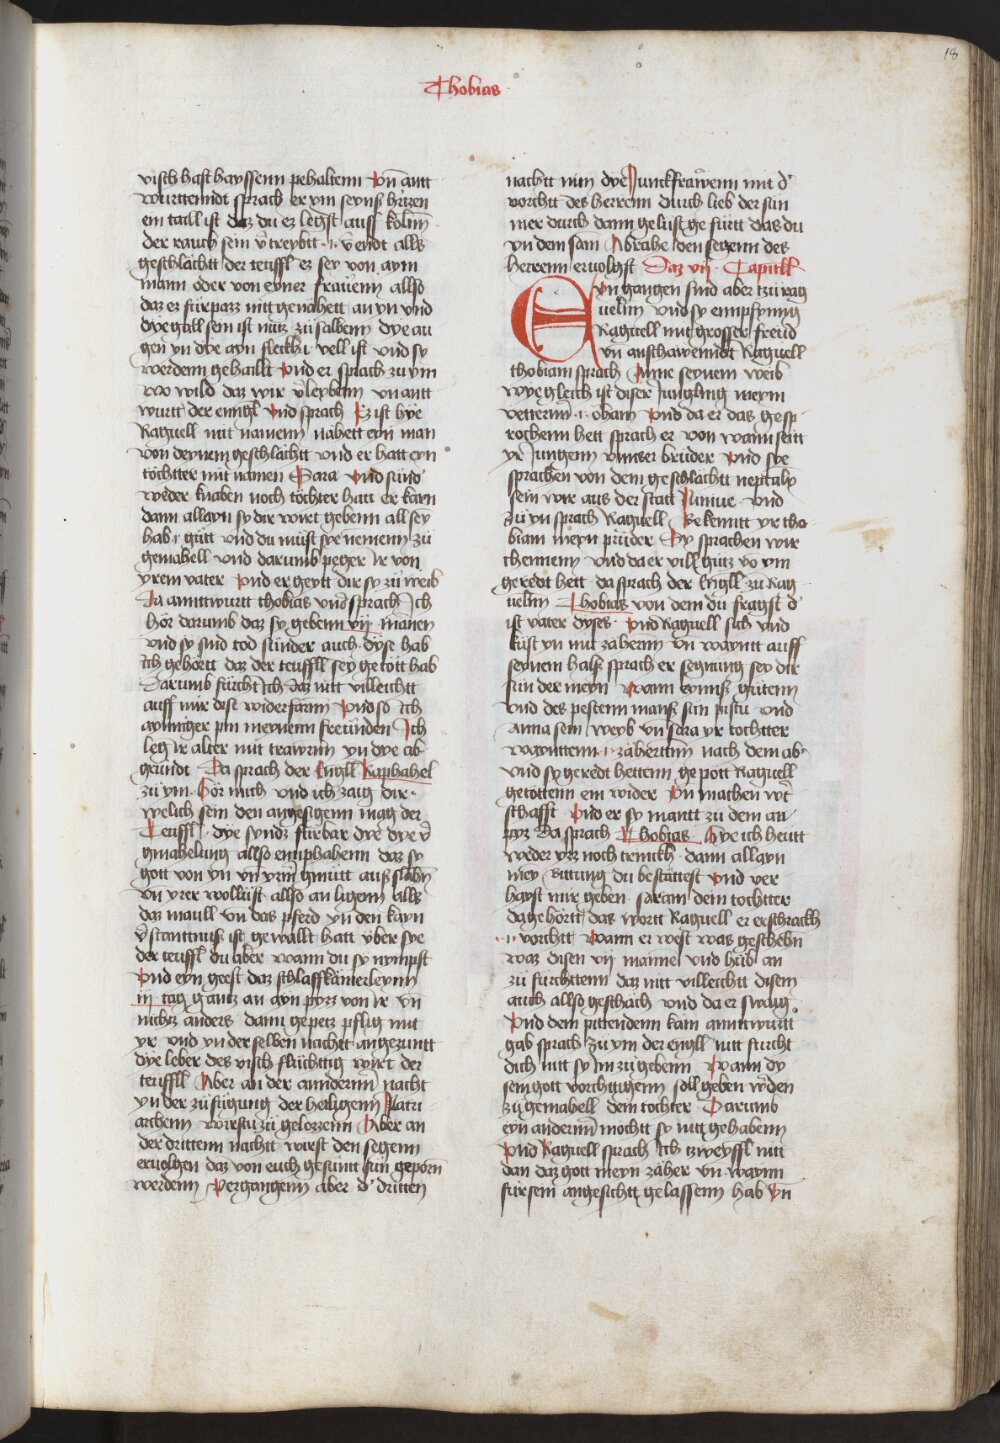 18
Thobias
visch hast hayssenn pehaltenn Vn̄ antt
wurttenndt sprach er ym seynß hr̄tzen
em taill ist daz du ez legst auff kolnn̄
der rauch sein v̄treybtt ·i· v̄endt alls
geschlächtt der teuffl ez sey von aym
mann oder von eyner frauenn allso
daz er fürpazz nitt genähett an yn vnd
dye gall sein ist nütz zü salbenn dye au
gen yn dye ayn fleckh i vell ist vnd sy
werdenn gehaillt Vnd er sprach zu ym
wo wild daz wir v̄leybenn vn antt
wurtt der enngl̄ Vnd sprach Ez ist hye
Raguell mit namenn nahett eyn man
von deynem geschlächtt vnd er hatt eyn
töchtter mit namen Sara Vnd sünd'
weder knaben noch töchter hatt er kayn
dann allayn sy dir wirt gebenn all sey
hab i gütt vnd du müst sye nemenn zü
gemahell vnd darumb peger ir von
yrem vater Vnd er geytt dir sy zu weib
Da anntwurtt thobias vnd sprach Ich
hör darumb daz sy gebenn vij mannen
vnd sy sind tod sunder auch dyse hab
ich gehörtt daz der teuffll sey getött hab
Darumb fürcht ich daz nitt villeichtt
auff mir dise widerfarnn Vnd so ich
ayniger pin meynenn freünden Ich
leg ir alter mit trawrnn yn dye ab
gründt Da sprach der Engll Raphahel
zu ym · Hör mich vnd ich zaig dir ·
welich sein den angesigenn mag der
Teuffl · dye syndz fürbar dye dye v̄
gmahelung allso emphahenn daz sy
gott von yn vn yrm̄ gmütt auß slahn̄
vn yrer wollust allso an ligenn alls
daz maull vn das pferd yn den kayn
v̄stanttnuß ist gewallt hatt vber sye
der teuffl du aber wann du sy nympst
Vnd eyn geest daz schlaffkämerleynn
iij tag gantz an ayn pyrz von ir vn̄
nichtz anders dann gepetz pflig mit
yr vnd yn der selben nachtt angezüntt
dye leber des visch flüchttig wirt der
teuffll Aber an der anndernn nacht
yn der züfügung der heiligenn Patri
archenn wirstu zü gelozzenn Aber an
der drittenn nachtt wirst den segenn
ervolgen daz von euch gesuntt sun geporn̄
werdenn Vergangenn aber d' dritten
nachtt nim dye Junckfrawenn mit d'
vorchtt des herrenn durch lieb der sün
mer durch dann gelüst gefürtt das du
yn dem sam Abrahe den segenn des
herrenn ervolgst Daz vij · Capittll
Eyn gangen sind aber tzü rag
uelnn vnd sy empfynng
Raguell mit grosser freud
vn anschawenndt Raguell
thobiam sprach Anne seynem weib
wye gleich ist diser Jungling meym
vetternn ·i· ohaym Vnd da er das gesp
rochenn hett sprach er von wann seitt
yr Jungenn vnnser brüder Vnd sye
sprachen von dem geschlächtt neptaly
sein wir aus der statt Ninive · Vnd
zü yn sprach Raguell Bekenntt yr tho
biam meyn prüder Dy sprachen wir
chennenn vnd da er vill gütz vō ym
geredt hett da sprach der Engll zu Rag
uelnn Thobias von dem du fragst d'
ist vater dyses · Vnd Raguell sich vnd
küst yn mit zähernn vn wayntt auff
seynem halß sprach er segnung sey dir
sün der meyn Wann eynnß gütenn
vnd des pestenn manß sün pistu vnd
anna sein weyb vn sara yr tochtter
waynttenn ·i· zähertnn nach dem ab
vnd sy geredt hettenn gepott Raguell
getöttenn ein wider Vn machen wt̄
schafft Vnd er sy mantt zu dem an
pyz Da sprach Thobias Hye ich heutt
weder yzz noch trinckh · dann allayn
mey pittung du bestättest Vnd ver
hayst mir geben saram dein tochtter
da gehörtt das wortt Raguell er erschrackh
·i· vorchtt Wann er west was geschehn̄
waz disen vij manne vnd hüb an
zü fürchttenn daz nitt villeichtt disem
auch allso geschach vnd da er swaig
Vnd dem pittendenn kain anntwurtt
gab sprach zu ym der engll nitt fürcht
dich nitt sy Im zü gebenn Wann dy
sein gott vorchttigenn soll geben w̄den
zü gemahell dein tochter Darumb
eyn andernn mochtt sy nitt gehabenn
Vnd Raguell sprach Ich tzweyffl nitt
dan daz gott meyn zäher vn waynn
für sein angesichtt gelassenn hab Vn̄